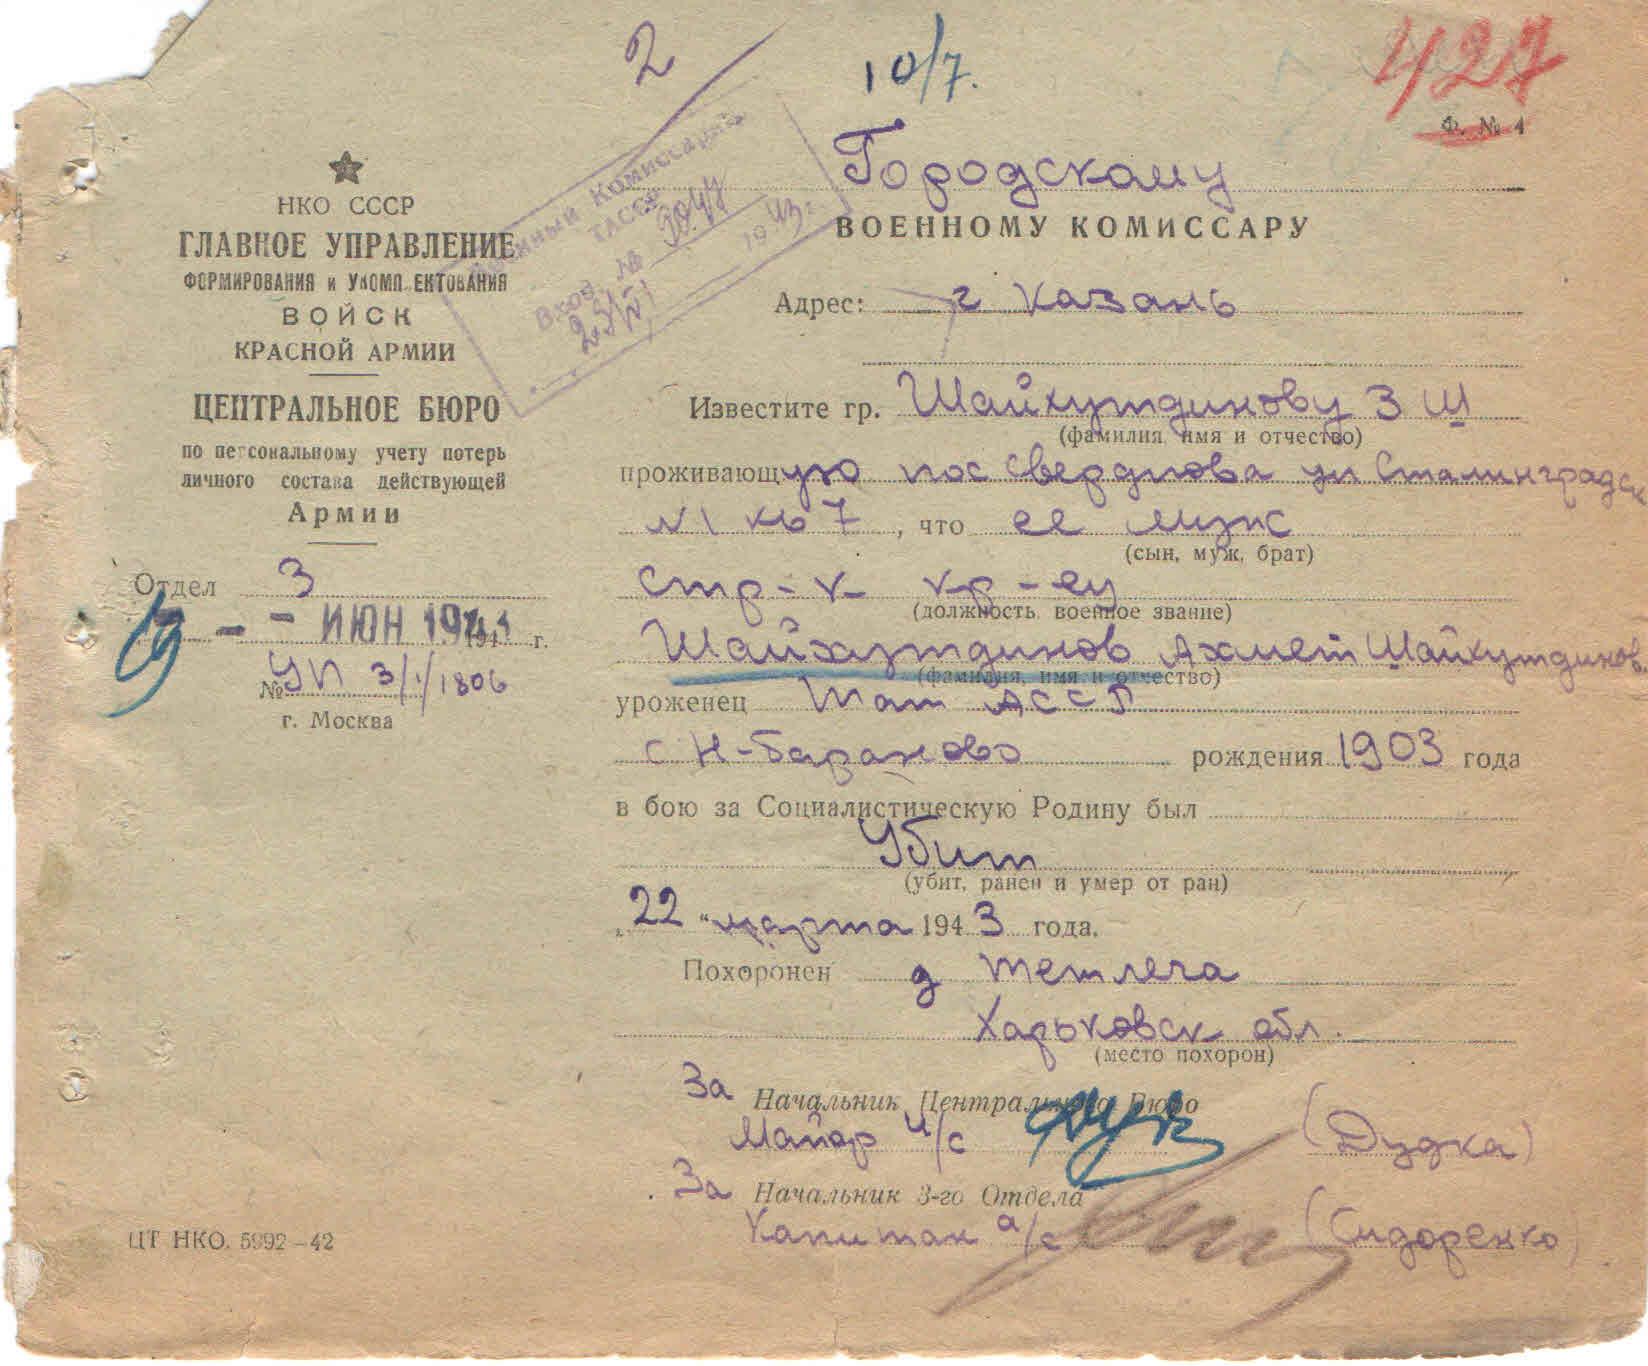 2
10/7.
427
Ф. № 4
НКО СССР
ГЛАВНОЕ УПРАВЛЕНИЕ
ФОРМИРОВАНИЯ и УКОМПЛЕКТОВАНИЯ
ВОЙСК
КРАСНОЙ АРМИИ
ЦЕНТРАЛЬНОЕ БЮРО
по персональному учету потерь
личного состава действующей
Армии
Отдел 3
- - ИЮН 194 г.
№ УП 3/1/1806
г. Москва
Военный Комиссариат
ТАССР
Вход. №
23/VI 1943 г.
Городскому
ВОЕННОМУ КОМИССАРУ
Адрес: г Казань
Известите гр. Шайхутдинову З Ш
(фамилия, имя и отчество)
проживающую пос Свердлова ул Сталинградск
№ 1 кв 7, что ее муж
(сын, муж, брат)
Стр-к кр-ец
(должность, военное звание)
Шайхутдинов Ахмет Шайхутдинов
(фамилия, имя и отчество)
уроженец Тат АССР
с Н-Бараново рождения 1903 года
в бою за Социалистическую Родину был
Убит
(убит, ранен и умер от ран)
„22 “ марта 1943 года.
Похоронен д Тетлега
Харьковск обл.
(место похорон)
За Начальник Центрального Бюро
Майор и/с (Дудка)
За Начальник 3-го Отдела
Капитан а/с (Сидоренко)
ЦТ НКО. 5992—42